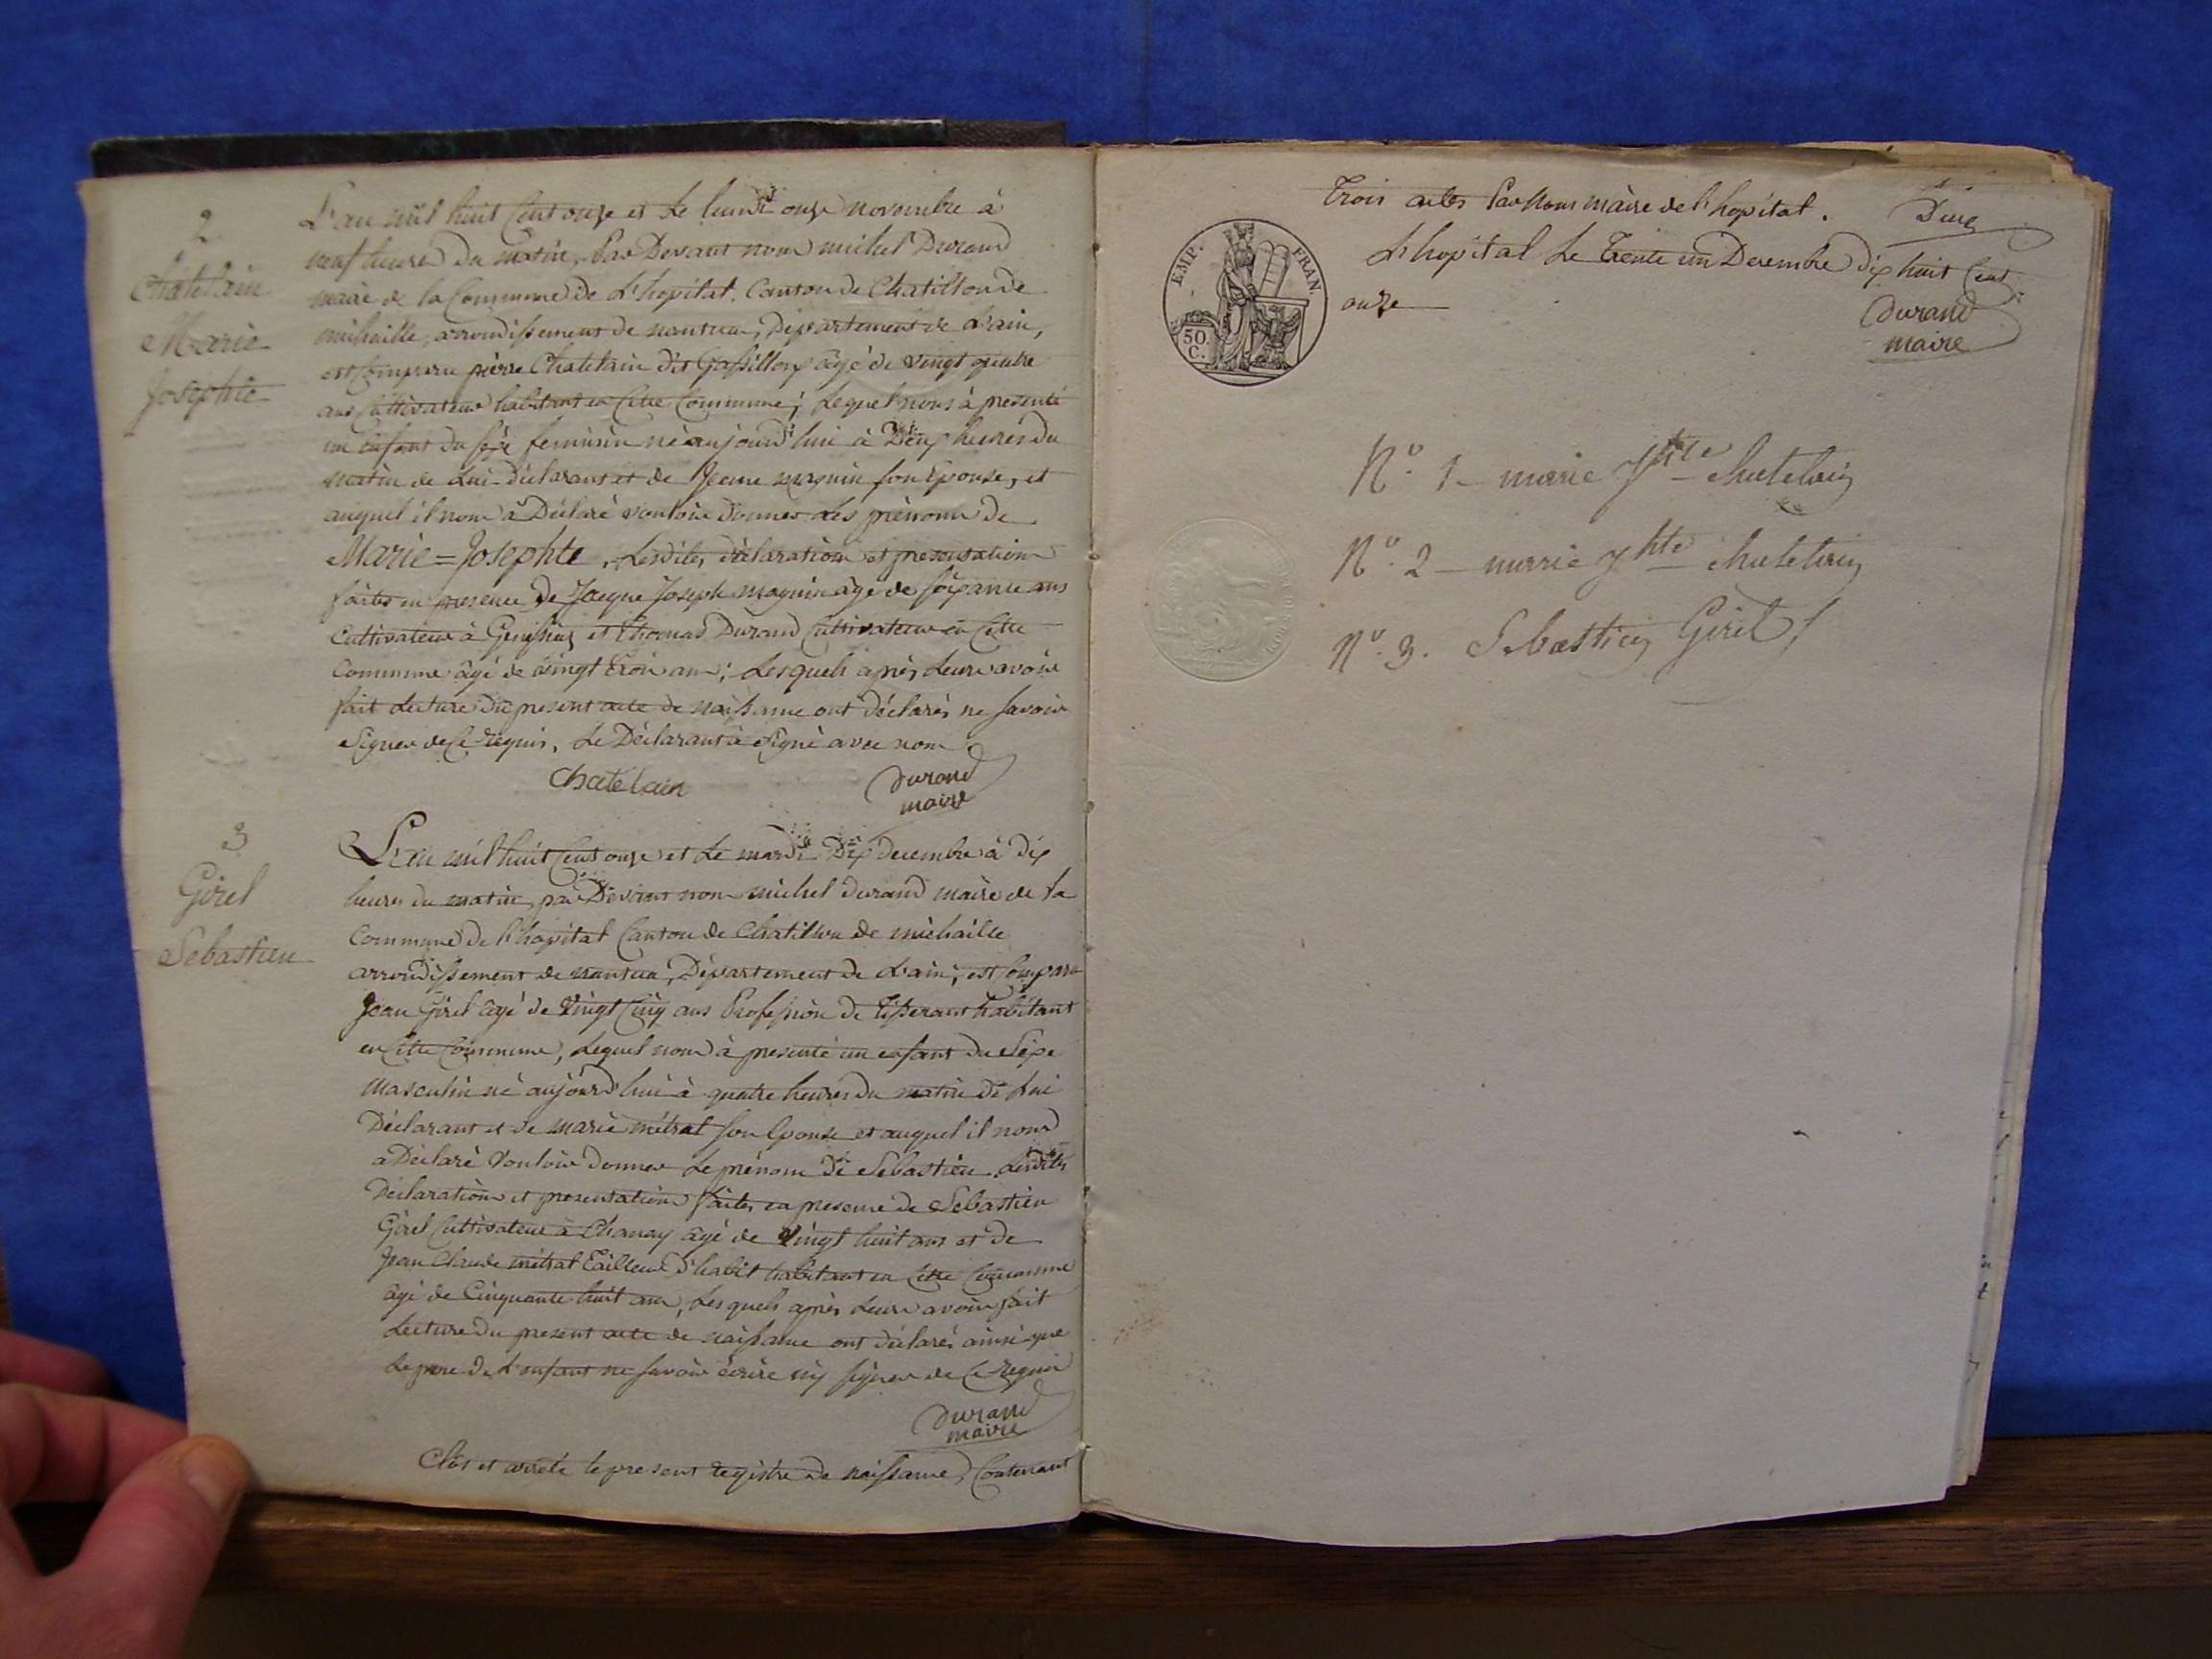 2
Chatelain
Marie
Josephte
L'an mil huit Cent onze et Le lundi onze novembre à
neuf heures du matin, Par Devant nous michel Durand
maire de la Commune de L'hopital, Canton de Chatillon de
michaille, arrondissement de nantua, Département de L'ain,
est Comparu pierre Chatelain dit Gassillon âgé de vingt quatre
ans Cultivateur habitant en Cette Commune; Lequel nous à presenté
un enfant du sexe feminin né aujourd'hui à Deux heures du
matin de Lui Déclarant et de Jeanne magnin son Epouse, et
auquel il nous à Déclaré vouloir Donner Les prénoms de
Marie=Josephte, Lesdites déclaration et presentation
faites en presence De Jacque Joseph magnin âgé de soixante ans
Cultivateur à Genissiaz et Thomas Durand Cultivateur en Cette
Commune âgé de vingt trois ans; Lesquels après Leurs avoir
fait Lecture du present acte de naissance ont déclarés ne savoir
Signer de Ce requis, Le Déclarant à signé avec nous
Chatelain
Durand
maire
3
Girel
Sebastien
L'an mil huit Cent onze et Le mardi Dix Decembre à Dix
heures du matin, par Devant nous michel Durand maire de la
Commune de l'hopital Canton de Chatillon de michaille
arrondissement de nantua, Département de L'ain, est Comparu
Jean Girel âgé de Vingt Cinq ans Profession de tisserant habitant
en Cette Commune, Lequel nous à presenté un enfant du Sexe
masculin né aujourd'hui à quatre heures du matin de Lui
Déclarant et de marie métral son Epouse et auquel il nous
a Déclaré Vouloir Donner Le prénom de Sebastien. Lesdites
Déclaration et presentation faites en presence de Sebastien
Girel Cultivateur à Chanay âgé de Vingt huit ans et de
Jean Claude métral Tailleur d'habit habitant en Cette Commune
âgé de Cinquante huit ans, Lesquels après Leurs avoir fait
Lecture du present acte de naissance ont déclarés ainsi que
Le pere de L'enfant ne savoir écrire ny signer de Ce requis
Durand
maire
Clos et arrêté le present registre de naissance, Contenant
trois actes Par Nous maire de l'hopital.
L'hopital Le Trente un Decembre dix huit Cent
onze
Durand
maire
EMP. FRAN.
50.
C.
N.° 1 - marie Jhte chatelain
N.° 2 - marie Jhte chatelain
N.° 3. Sebastien Girel